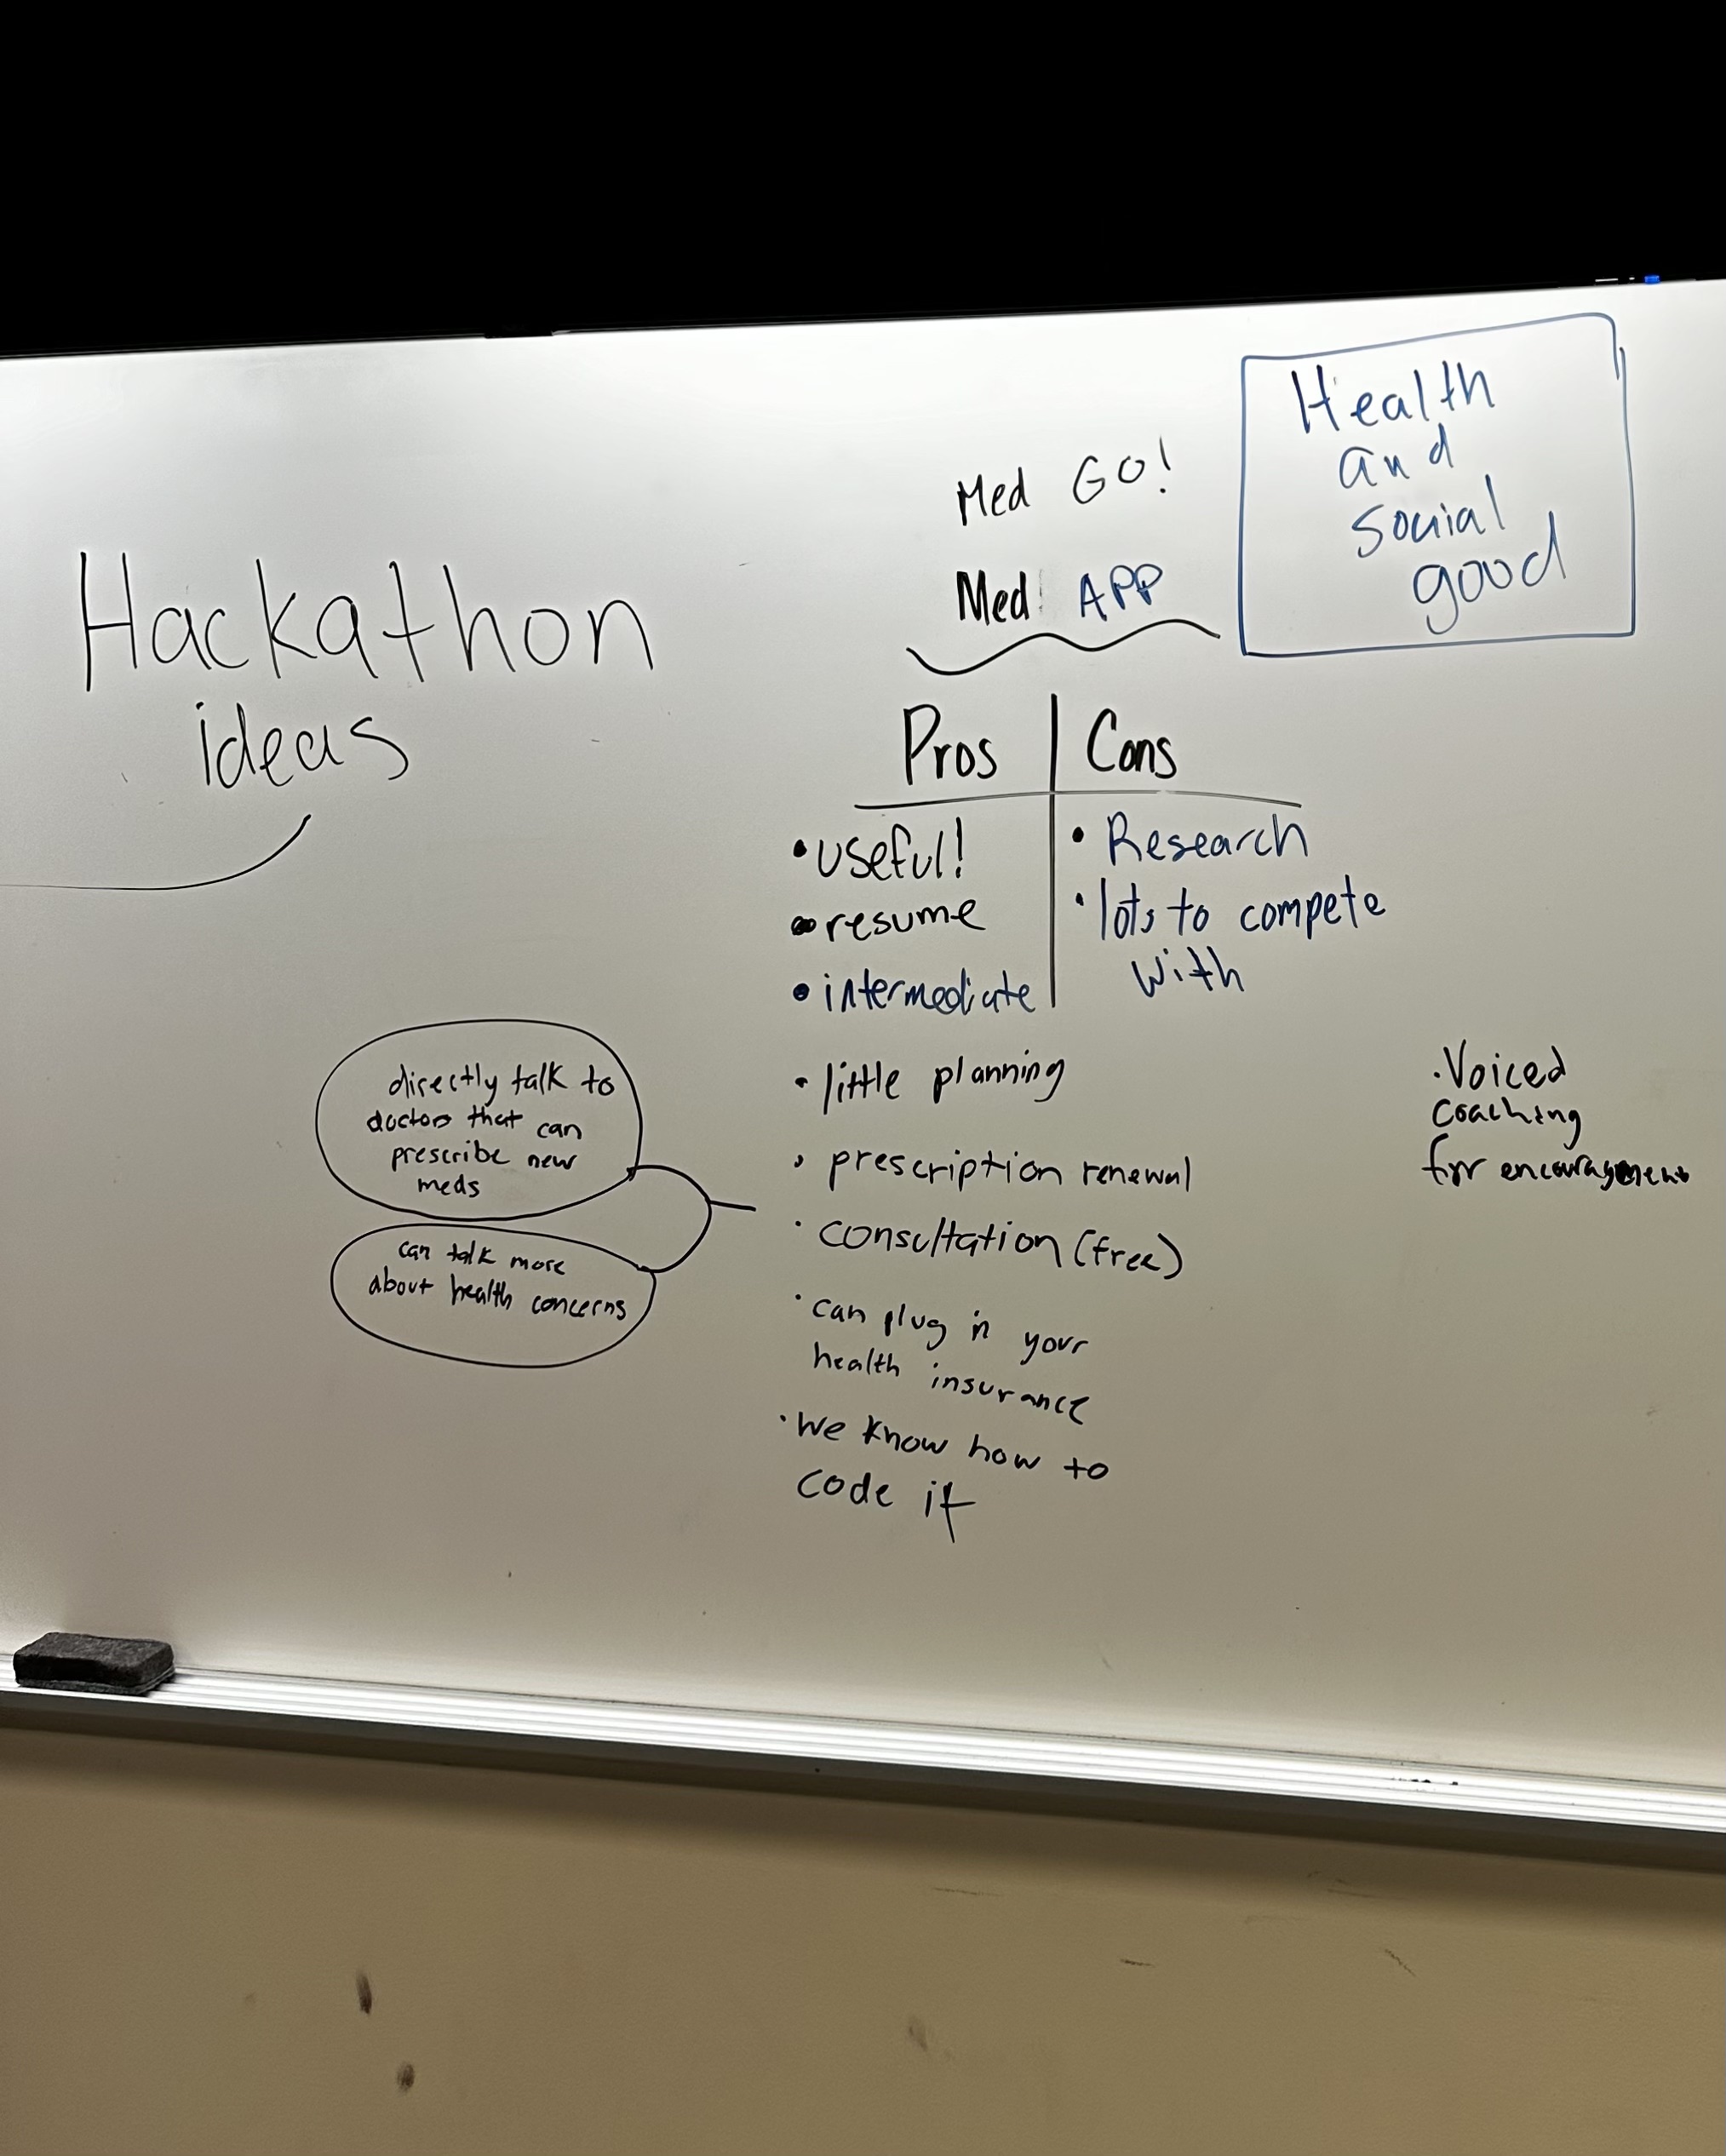 Hackathon
ideas
Med GO!
Med APP
Health
and
social
good
Pros | Cons
• useful!
• resume
• intermediate
• little planning
• prescription renewal
• consultation (free)
• can plug in your
health insurance
• we know how to
code it
• Research
• lots to compete
with
directly talk to
doctors that can
prescribe new
meds
can talk more
about health concerns
• Voiced
coaching
for encouragement